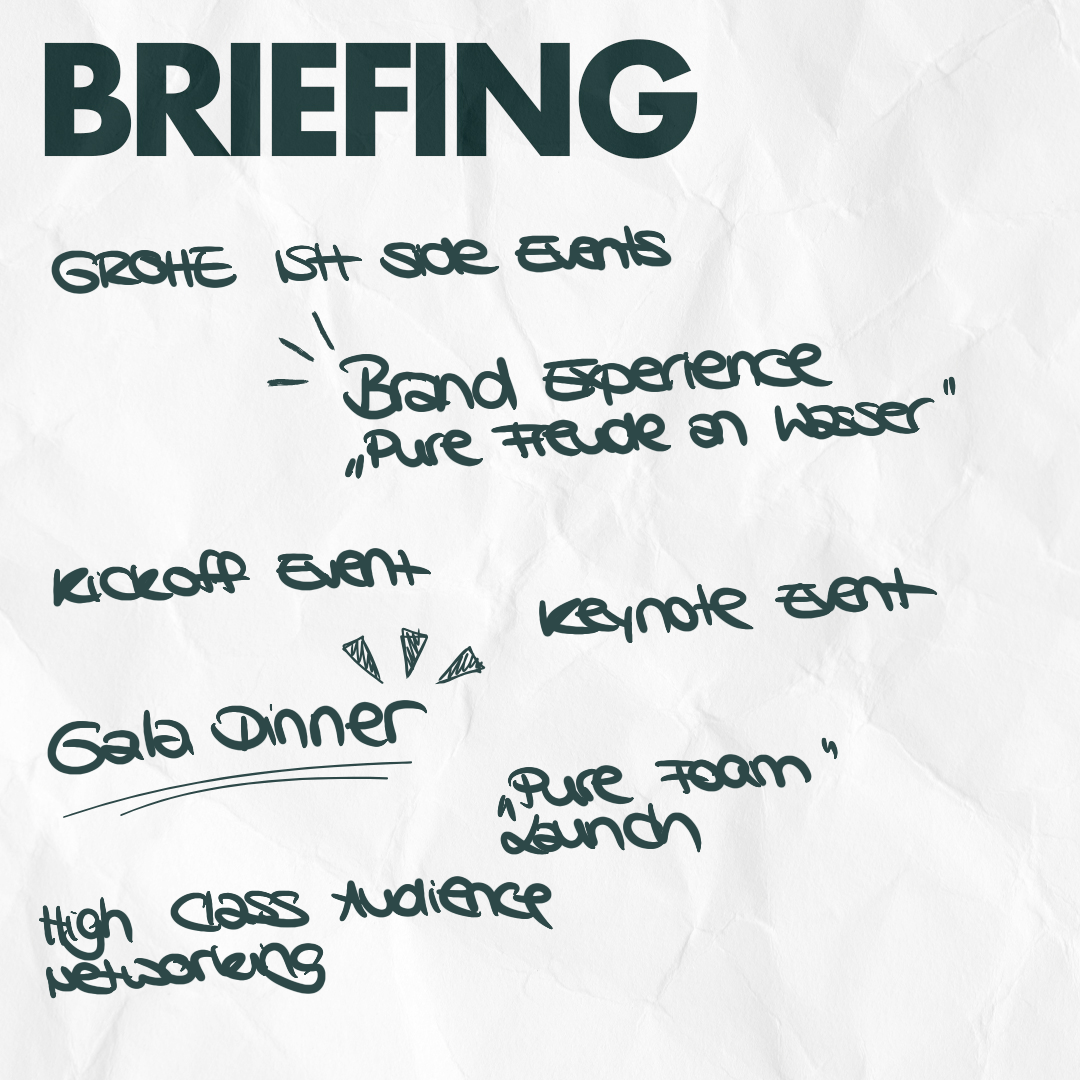 BRIEFING
GROHE ISH Side Events
Brand Experience
„Pure Freude an Wasser"
Kickoff Event
Keynote Event
Gala Dinner
„Pure Foam"
Launch
High Class Audience
Networking